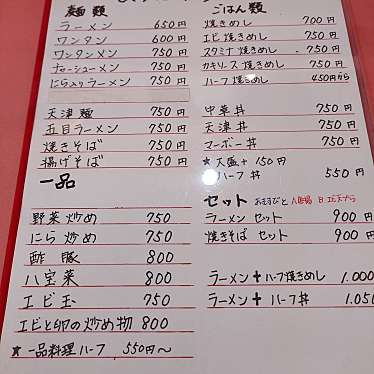 麺類
ラーメン 650円
ワンタン 600円
ワンタンメン 750円
チャーシューメン 750円
にら入りラーメン 750円
天津麺 750円
五目ラーメン 750円
焼きそば 750円
揚げそば 750円
一品
野菜炒め 750
にら炒め 750
酢豚 800
八宝菜 800
エビ玉 750
エビと卵の炒め物 800
★一品料理ハーフ 550円〜
ごはん類
焼きめし 700円
エビ焼きめし 750円
スタミナ焼きめし 750円
カキソース焼きめし 750円
ハーフ焼きめし 450円から
中華丼 750円
天津丼 750円
マーボー丼 750円
★大盛+150円
ハーフ丼 550円
セット
ラーメンセット 900円
焼きそばセット 900円
ラーメン+ハーフ焼きめし 1.000
ラーメン+ハーフ丼 1.050